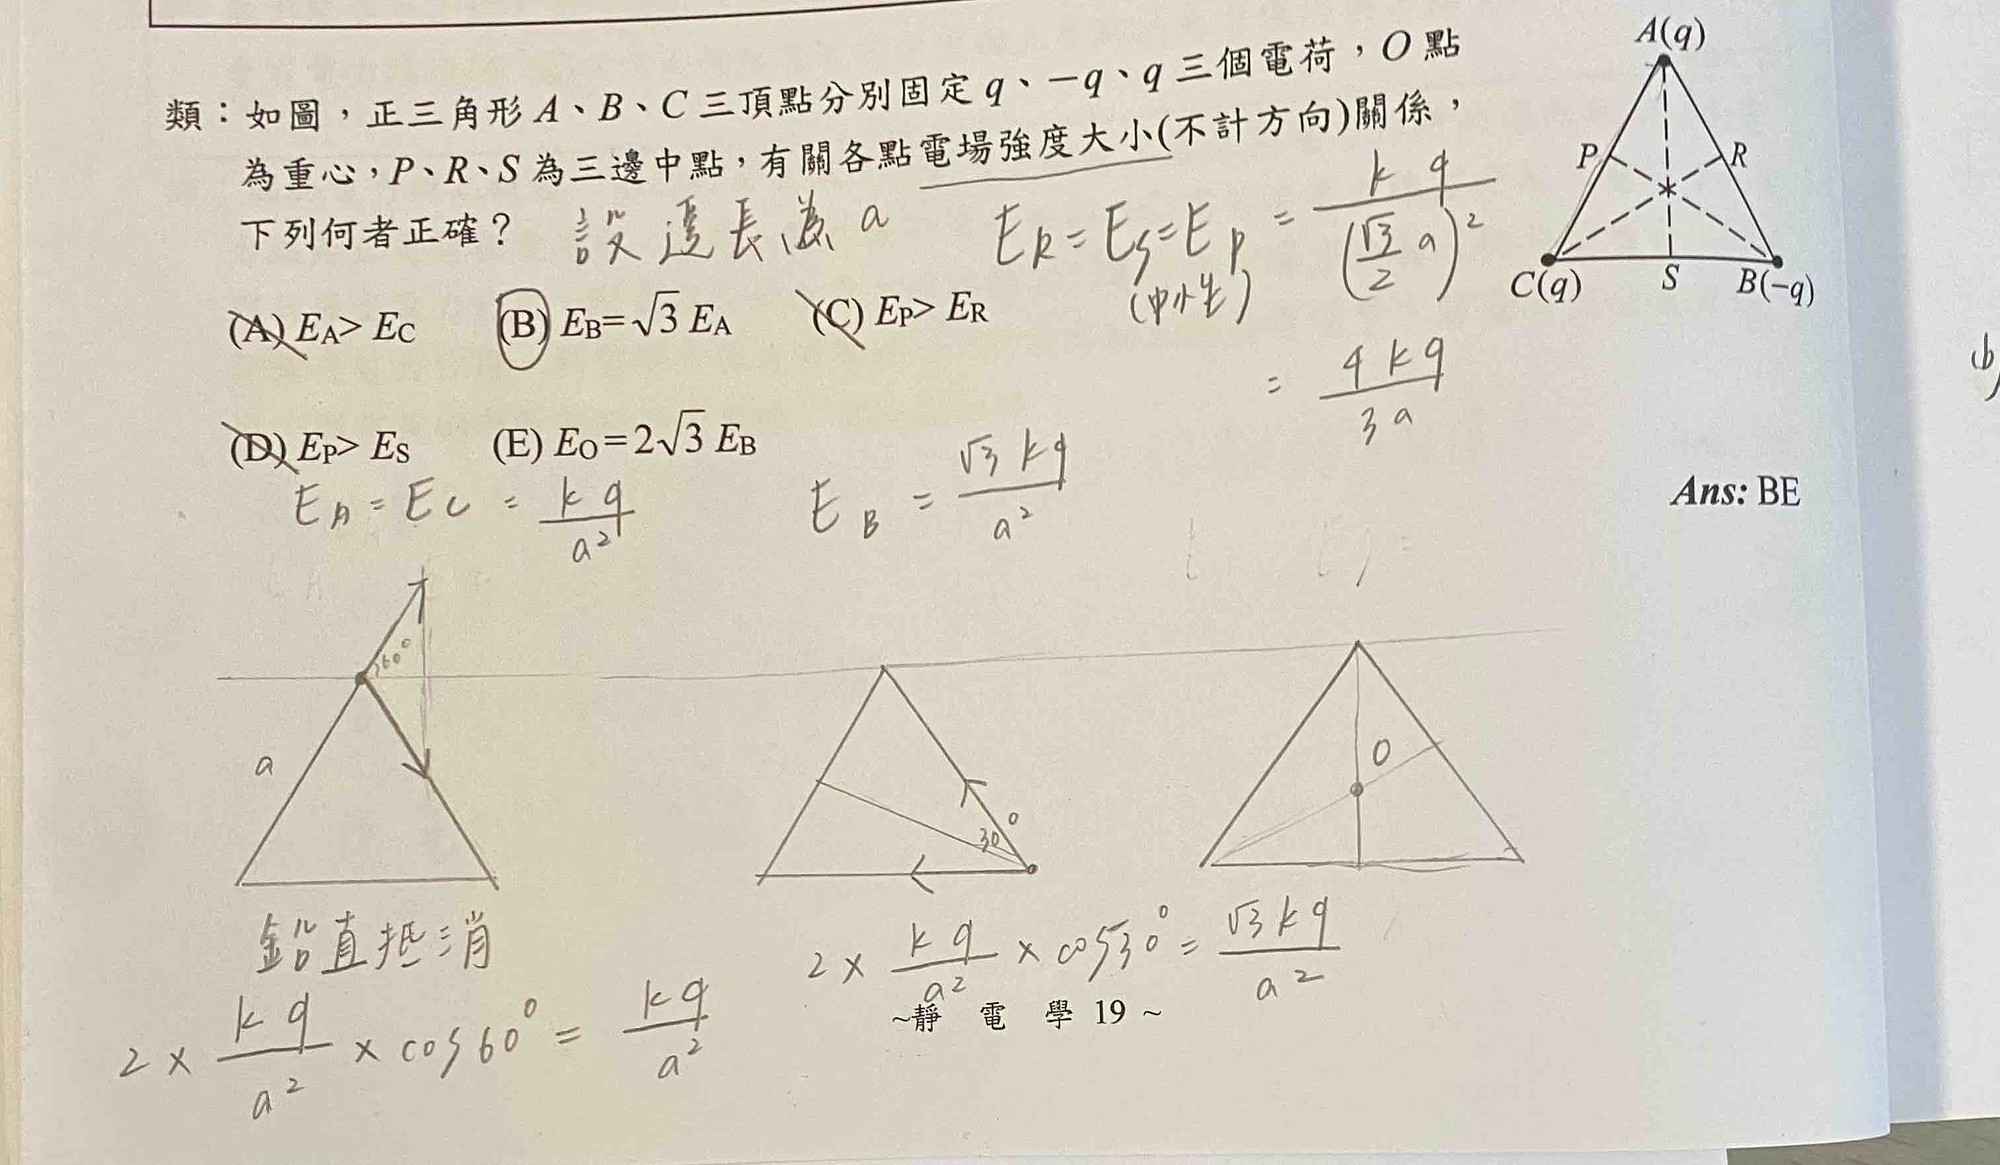 類：如圖，正三角形 A、B、C 三頂點分別固定 q、－q、q 三個電荷，O 點
為重心，P、R、S 為三邊中點，有關各點電場強度大小(不計方向)關係，
下列何者正確？
設邊長為 a
E_R = E_S = E_P = kq / (√3/2 a)²
(中小生)
= 4kq / 3a
(A) E_A > E_C (B) E_B = √3 E_A (C) E_P > E_R
(D) E_P > E_S (E) E_O = 2√3 E_B
A(q)
P
R
C(q)
S
B(-q)
Ans: BE
E_A = E_C = kq / a²
E_B = √3 kq / a²
60°
a
30°
O
鉛直抵消
2 × kq / a² × cos60° = kq / a²
2 × kq / a² × cos30° = √3 kq / a²
~靜 電 學 19 ~